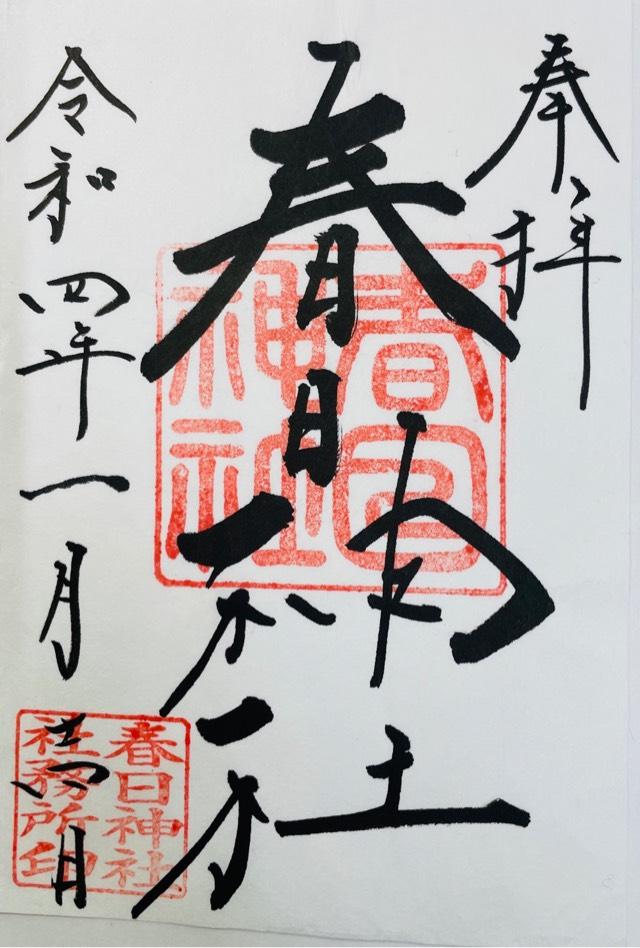 奉拝
春日神社
春日神社
令和四年一月
春日神社
社務所印